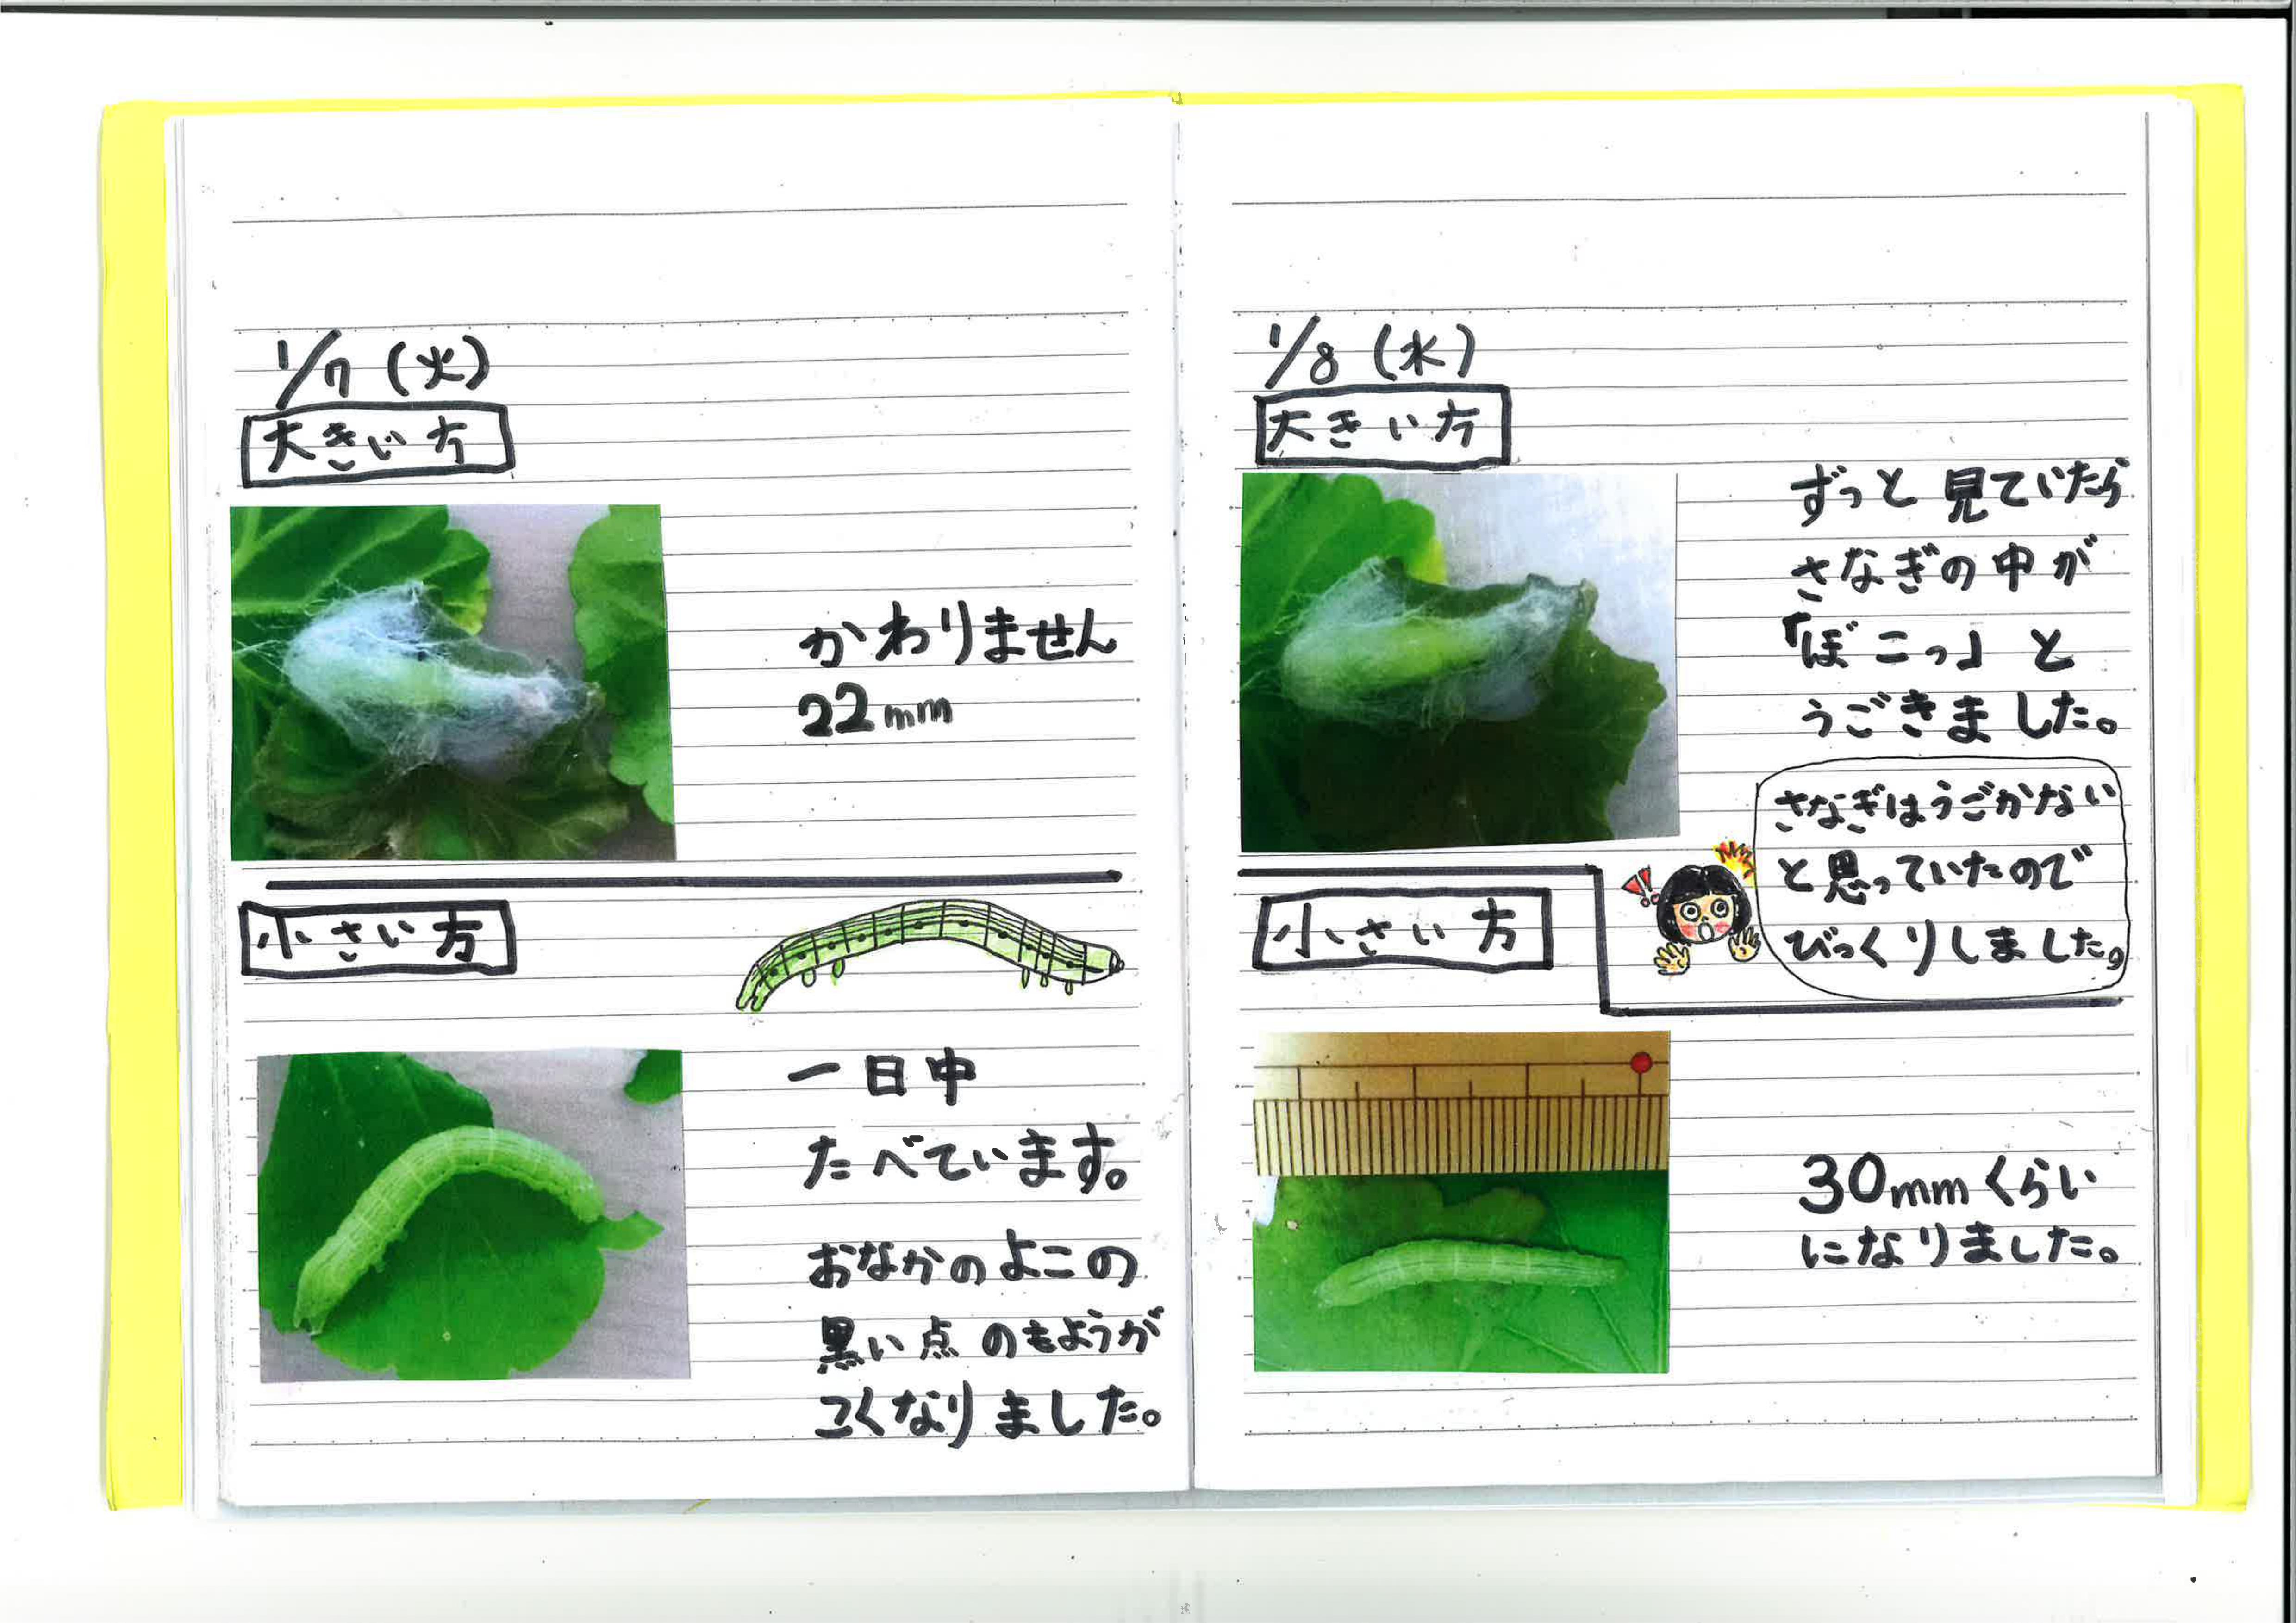 1/7 (火)
大きい方
かわりません
22mm
小さい方
一日中
たべています。
おなかのよこの
黒い点のもようが
こくなりました。
1/8 (水)
大きい方
ずっと見ていたら
さなぎの中が
「ぼこっ」と
うごきました。
さなぎはうごかない
と思っていたので
びっくりしました。
小さい方
30mmくらい
になりました。